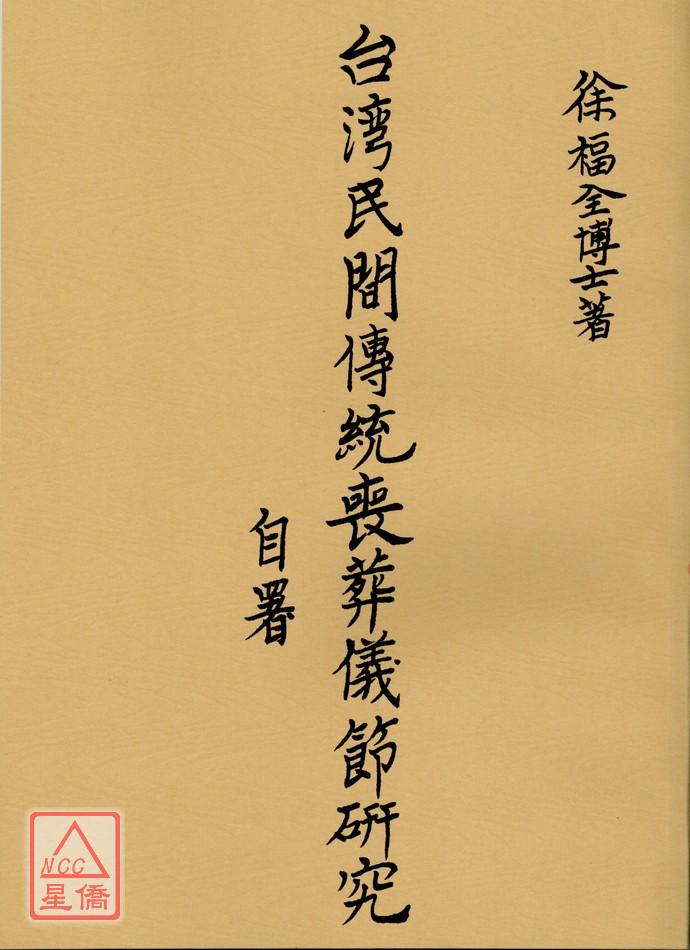 徐福全博士著
台湾民間傳統喪葬儀節研究
自署
NCC
星僑